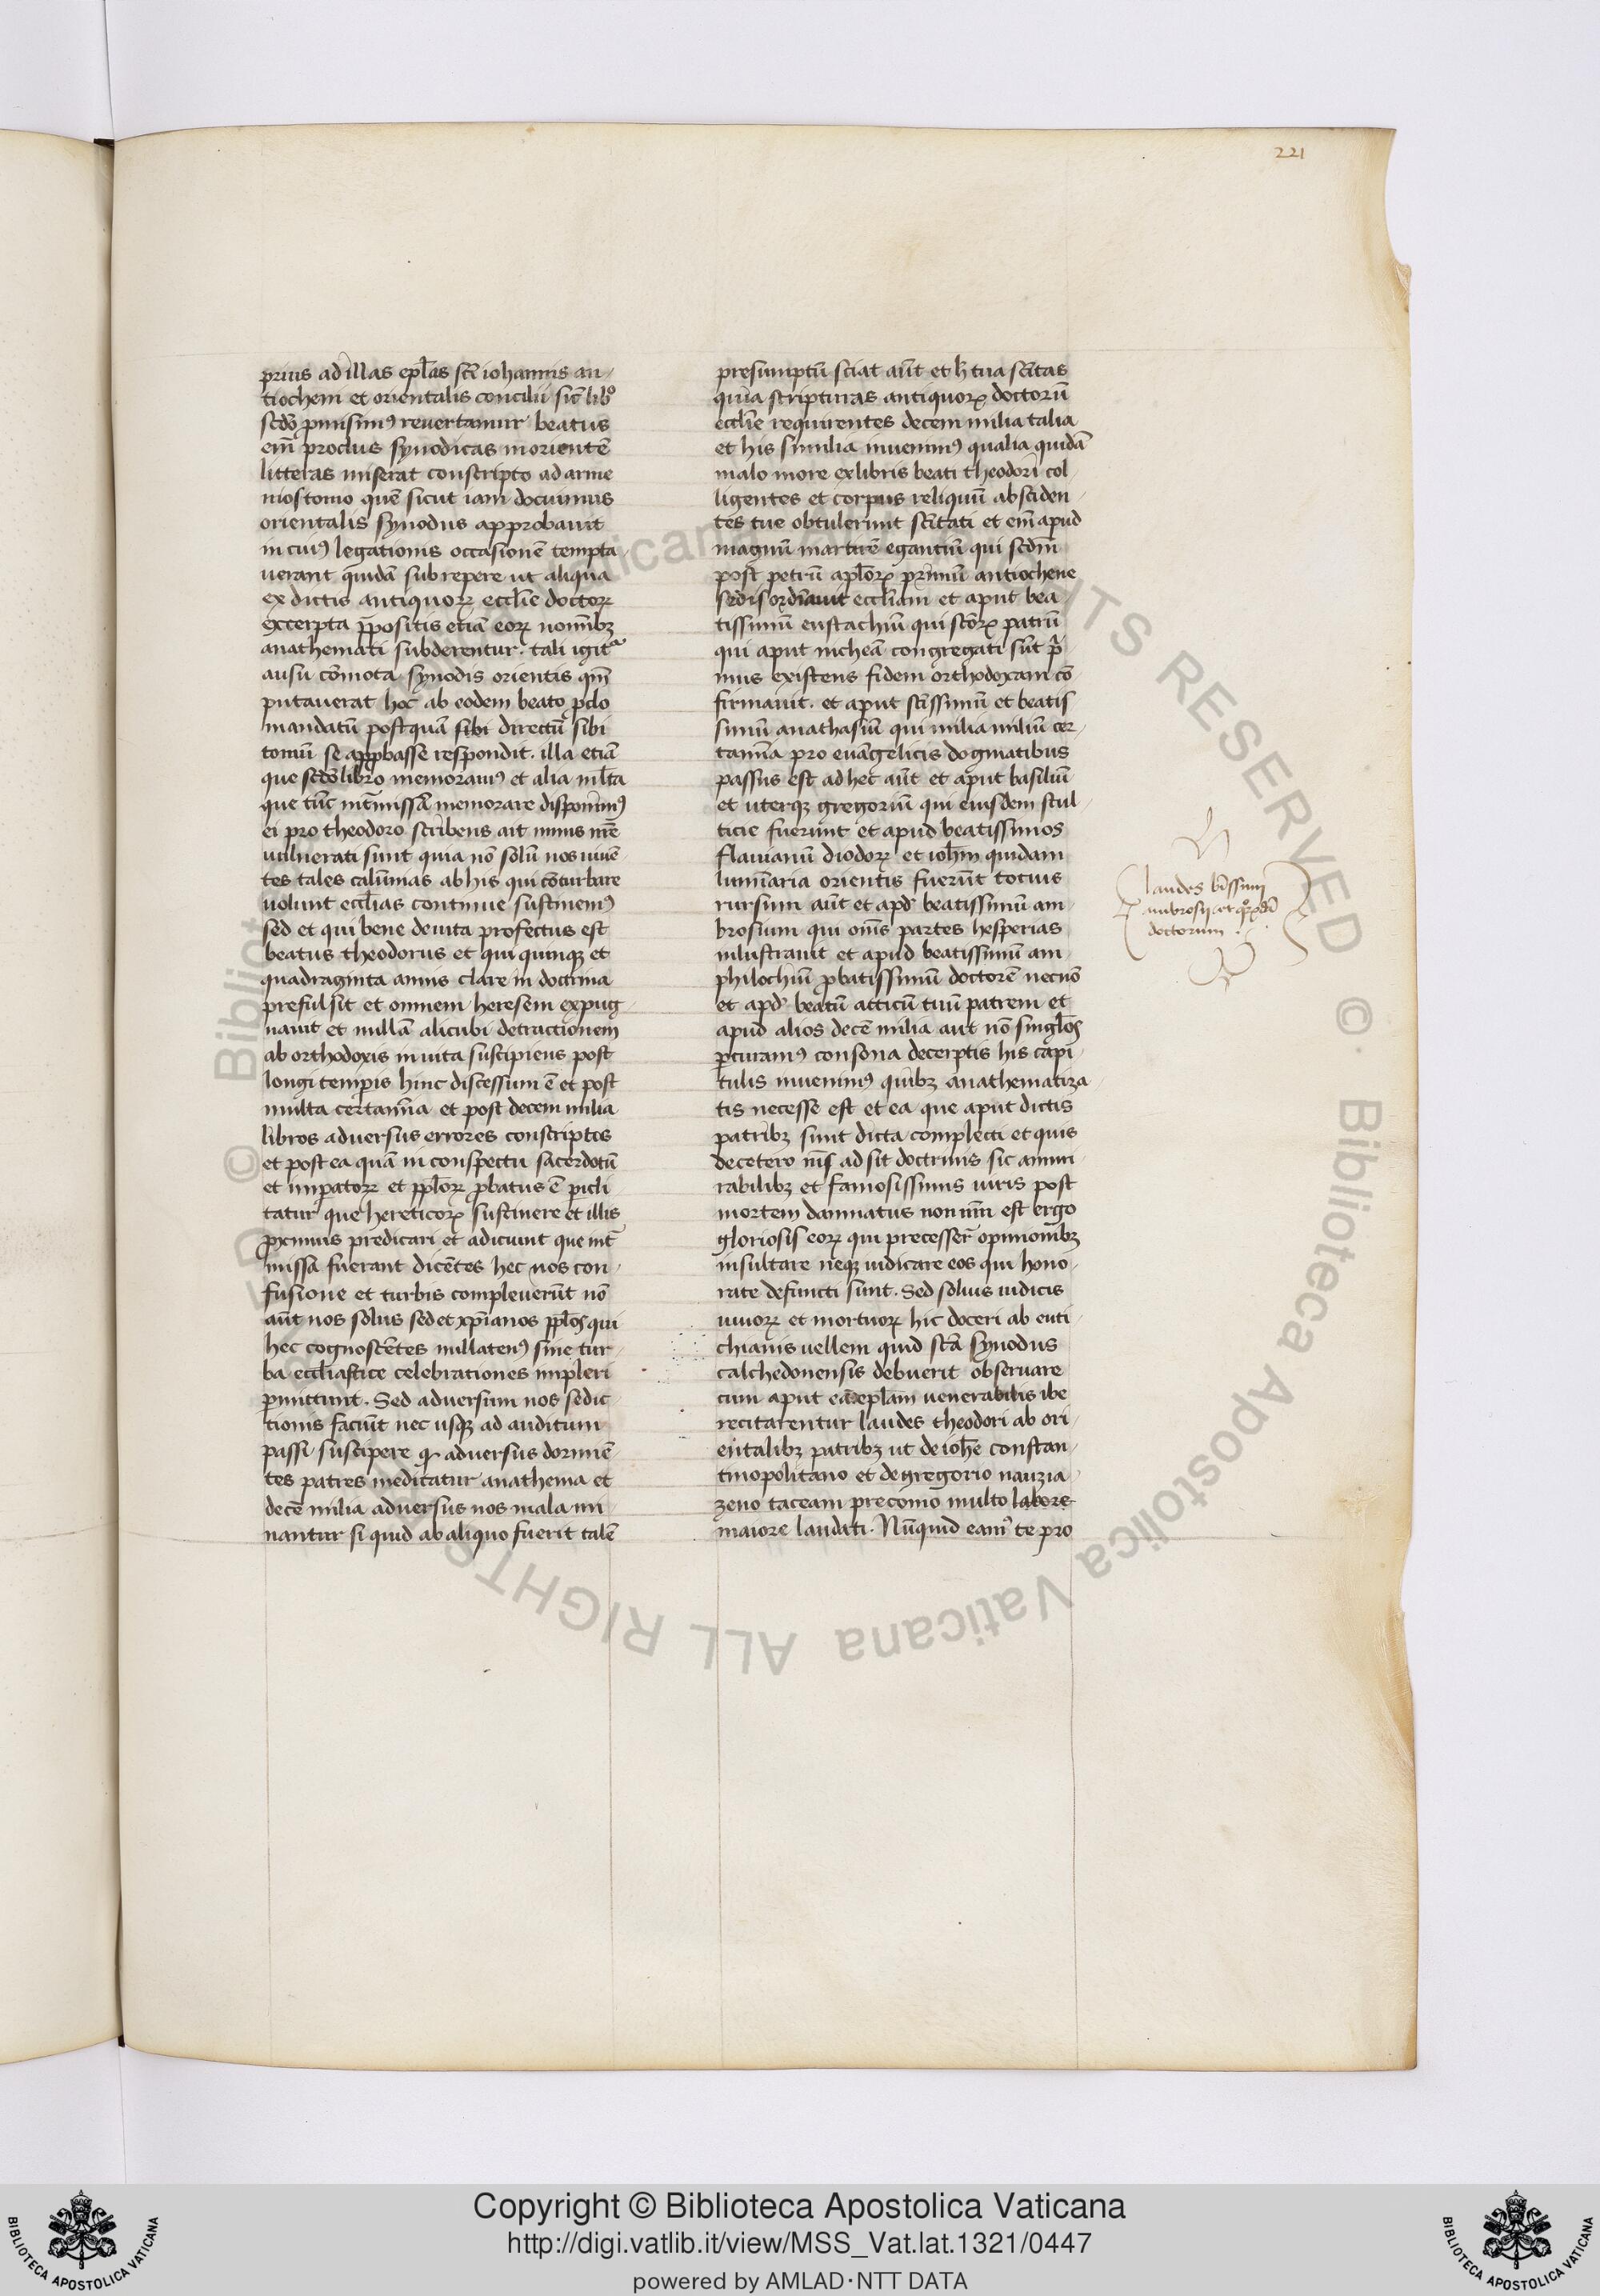 221
prius ad illas epl̄as sc̄i iohannis an-
tiochem et orientalis concilii sic̄ libº
sc̄do p̄misimꝰ revertamur beatus
em̄ proclus synodicas morientē
litteras miserat conscripto ad arme
nios tomo quē sicut iam docuimus
orientalis synodus approbauit
in cuiꝰ legationis occasionē tempta
uerant quidā subrepere ut aliqua
ex dictis antiquoꝝ eccl̄ie doctoꝝ
excerpta p̄positis etiā eoꝝ nomībꝫ
anathemati subderentur. tali igit̄
ausu cōmota synodis orientis qm̄
putauerat hoc ab eodem beato p̄clo
mandatū postquā sibi directū sibi
tomū se app̄basse respondit. illa etiā
que sc̄do libro memorauimꝰ et alia ml̄ta
que tūc int̄missa memorare disponimꝰ
ei pro theodoro scribens ait nimis nr̄e
uulnerati sunt quia nō solū nos uiuē
tes tales calūnias ab his qui cōturbare
uolunt eccl̄ias continue sustinemꝰ
sed et qui bene de uita profectus est
beatus theodorus et qui quinqꝫ et
quadraginta annis clare in doctrina
prefulsit et omnem heresem expug-
nauit et nullā alicubi detractionem
ab orthodoxis in uita suscipiens post
longi temp̄is hinc discessum ē et post
multa certamīna et post decem milia
libros aduersus errores conscriptos
et post ea quā in conspectu sacerdotū
et imp̄atoꝝ et pp̄loꝝ p̄batus ē p̄icli
tatur que hereticoꝝ sustinere et illis
p̄ximus predicari et adiciunt que int̄
missa fuerant dicētes hec nos con-
fusione et turbis compleuerūt nō
aūt nos solus sed et xp̄ianos pp̄los qui
hec cognoscētes nullatenꝰ sine tur-
ba eccl̄iastice celebrationes impleri
p̄mittunt. Sed aduersum nos sedic-
tionis faciūt nec usqꝫ ad auditum
passi suscipere qꝛ aduersus dormiē-
tes patres meditatur anathema et
decē milia aduersus nos mala mi-
nantur si quid ab aliquo fuerit talē
presumptū sciat aūt et h̄ tua sc̄itas
quia scripturas antiquoꝝ doctorū
eccl̄ie requirentes decem milia talia
et his similia inuenimꝰ qualia quidā
malo more ex libris beati theodori col-
ligentes et corpus reliquū absciden-
tes tue obtulerunt sc̄itati et em̄ apud
magnū martirē egantiū qui sedm̄
post petrū apl̄oꝝ primū antiochene
sedis ordīauit eccl̄iam et aput bea-
tissimū eustachiū qui sc̄oꝝ patrū
qui aput nicheā congregati sūt p̄
mus existens fidem orthodoxam cō
firmauit. et aput sc̄issimū et beatis
simū anathasiū qui milia miliū cer-
tamīa pro euāgelicis dogmatibus
passus est ad hec aūt et aput basiliū
et uterqꝫ gregoriū qui eiusdem stul-
ticie fuerunt et apud beatissimos
flauianū diodoꝝ et ioh̄m quidam
lumīaria orientis fuerūt totius
rursum aūt et apd̄ beatissimū am-
brosium qui om̄s partes hesperias
inlustrauit et apud beatissimū am-
philochiū p̄batissimū doctorē necnō
et apd̄ beatū atticū tuū patrem et
apud alios decē milia aut nō singl̄os
p̄curamꝰ consona decerptis his capi-
tulis inuenimꝰ quibꝫ anathematiza-
tis necesse est et ea que aput dictis
patribꝫ sunt dicta complecti et quis
decetero nīs adsit doctrinis sic amm
rabilibꝫ et famosissimis uiris post
mortem damnatus non nīn est ergo
gloriosis eoꝝ qui precesser̄ opinionibꝫ
insultare neqꝫ iudicare eos qui hono-
rate defuncti sunt. Sed solius iudicis
uiuoꝝ et mortuoꝝ hic doceri ab euti-
chianis uellem quid sc̄a synodus
calchedonensis debuerit obseruare
cum aput eādē epl̄am uenerabilis ibe
recitarentur laudes theodori ab ori-
entalibꝫ patribꝫ ut de ioh̄e constan-
tinopolitano et de gregorio nauzia-
zeno taceam preconio multo labore
maiore laudati. Nūquid eamꝰ te pro
laudes b̄issimi
ambrosij et q̄ꝝdā
doctorum.
© Biblioteca Apostolica Vaticana ALL RIGHTS RESERVED
Copyright © Biblioteca Apostolica Vaticana
http://digi.vatlib.it/view/MSS_Vat.lat.1321/0447
powered by AMLAD·NTT DATA
BIBLIOTECA APOSTOLICA VATICANA
BIBLIOTECA APOSTOLICA VATICANA